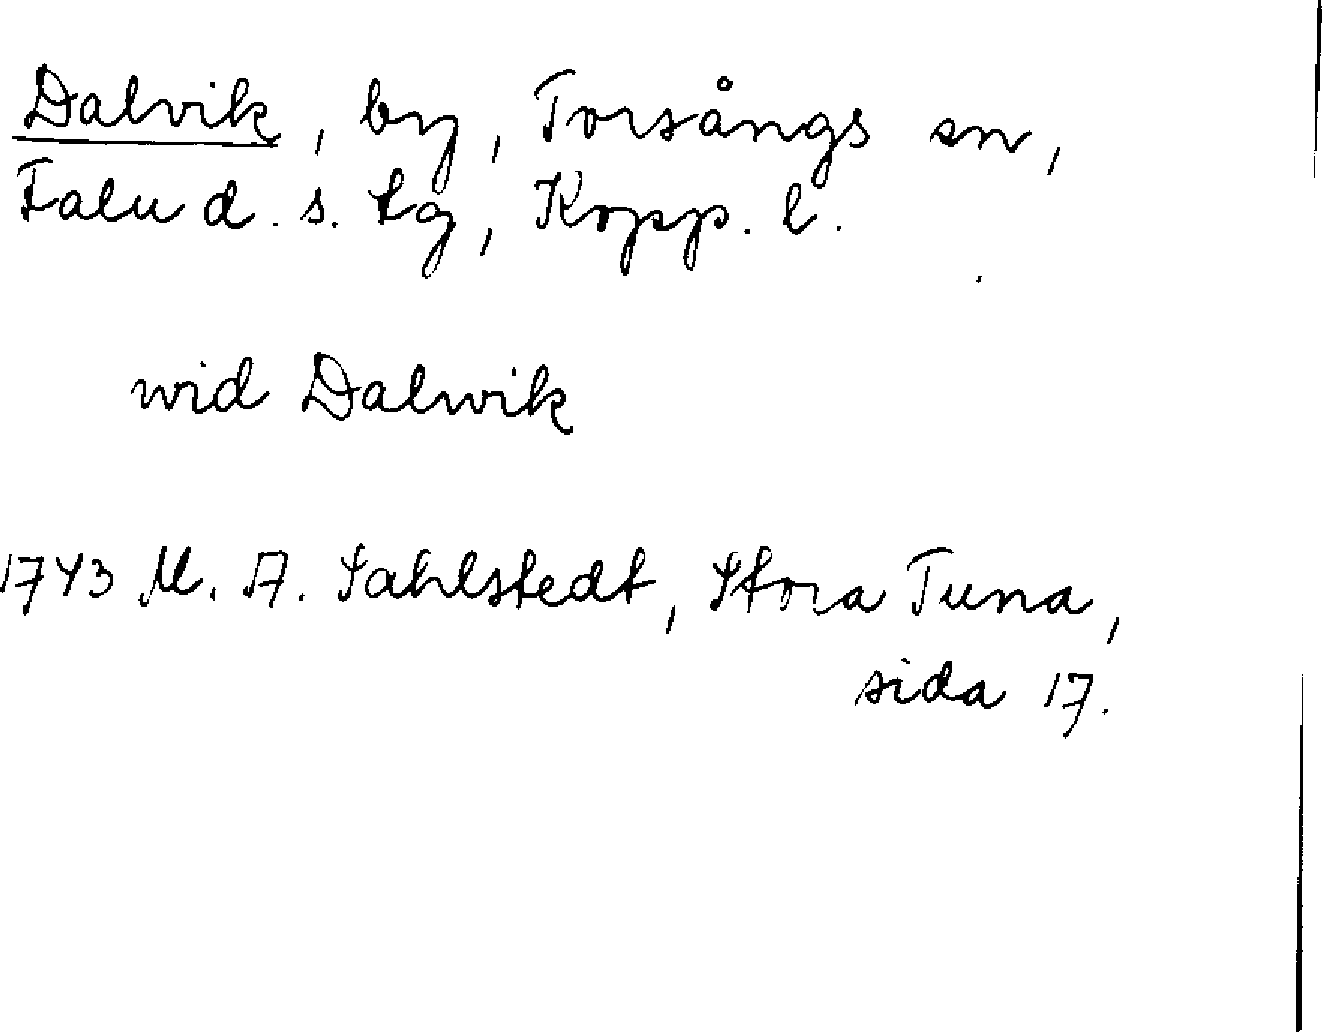 Dalvik, by, Torsångs sn,
Falu d. s. tg, Kopp. l.
wid Dalwik
1743 M. A. Sahlstedt, Stora Tuna,
sida 17.